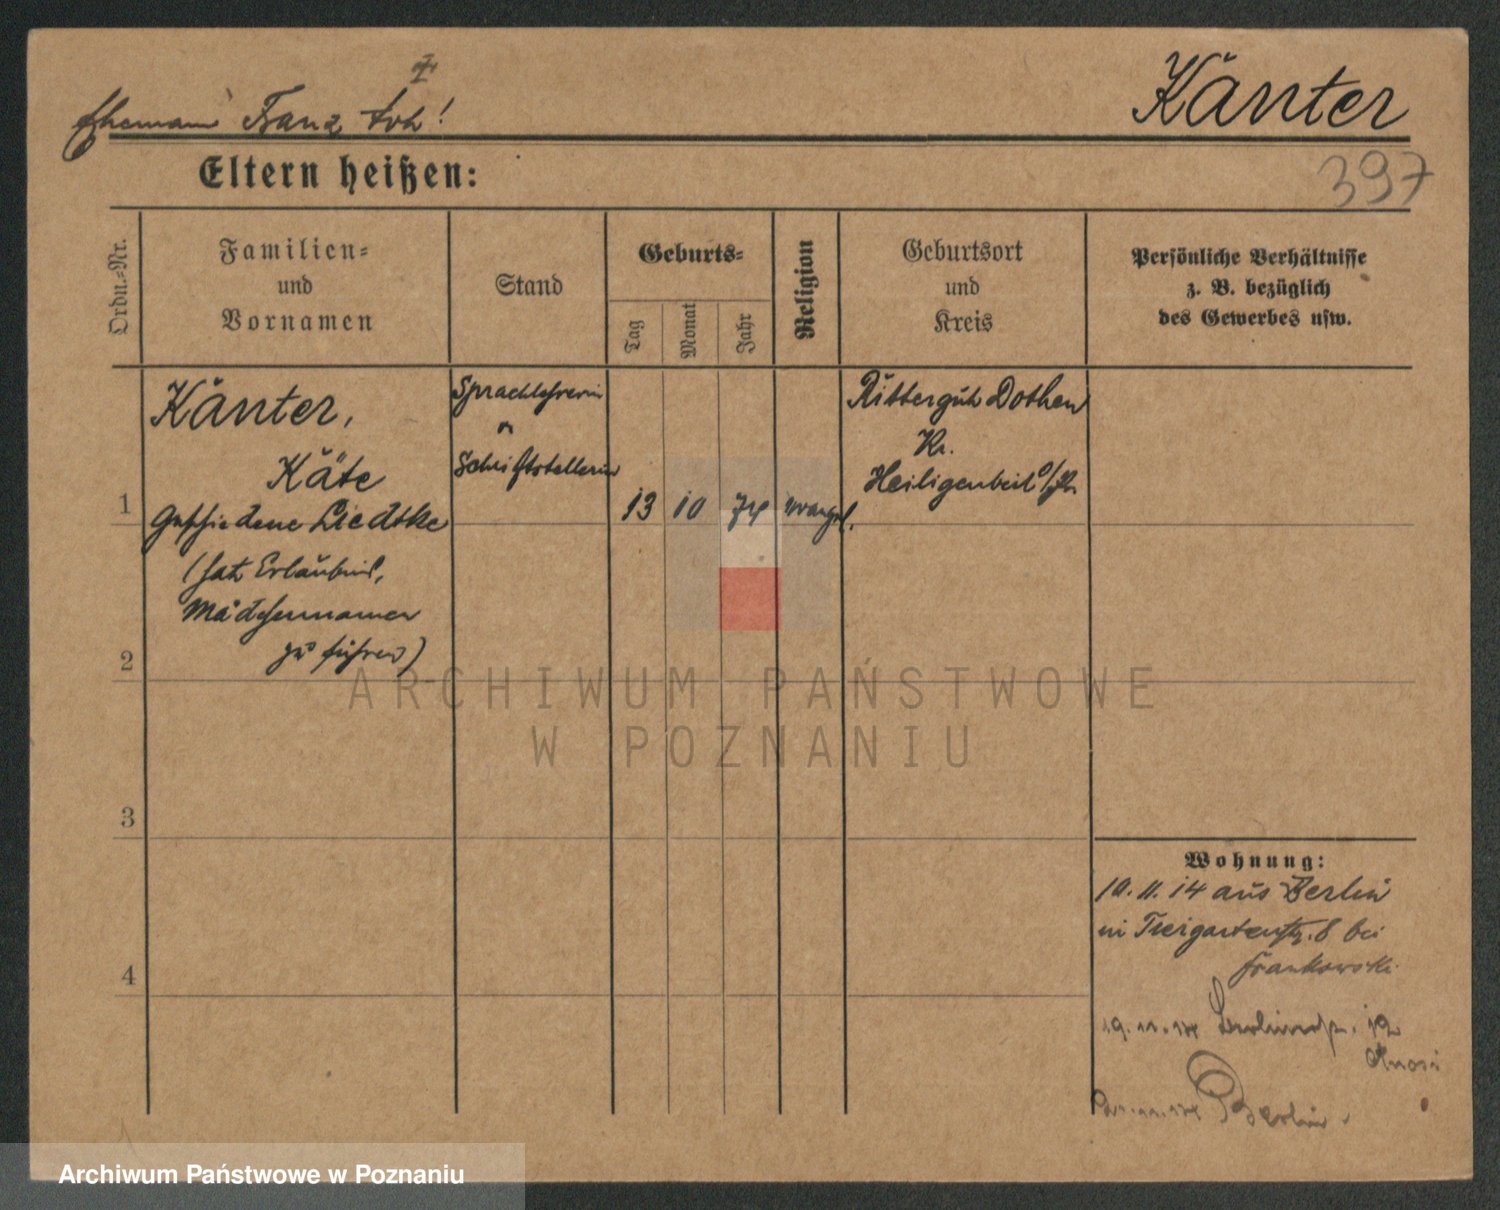 Ehemann Franz tot!
Känter
397
Eltern heißen:
Ordn.=Nr.
Familien=
und
Vornamen
Stand
Geburts=
Tag
Monat
Jahr
Religion
Geburtsort
und
Kreis
Persönliche Verhältnisse
z. B. bezüglich
des Gewerbes usw.
1
Känter,
Käte
geschiedene Liedtke
(hat Erlaubnis,
Mädchennamen
zu führen)
Sprachlehrerin
u
Schriftstellerin
13
10
74
evangel.
Rittergut Dothen
Kr.
Heiligenbeil O/Pr.
2
3
4
Wohnung:
10. 11. 14 aus Berlin
in Tiergartenstr. 8 bei
Frankowski
19. 11. 14 Berlinerstr. 12
Berlin
ARCHIWUM PAŃSTWOWE
W POZNANIU
Archiwum Państwowe w Poznaniu